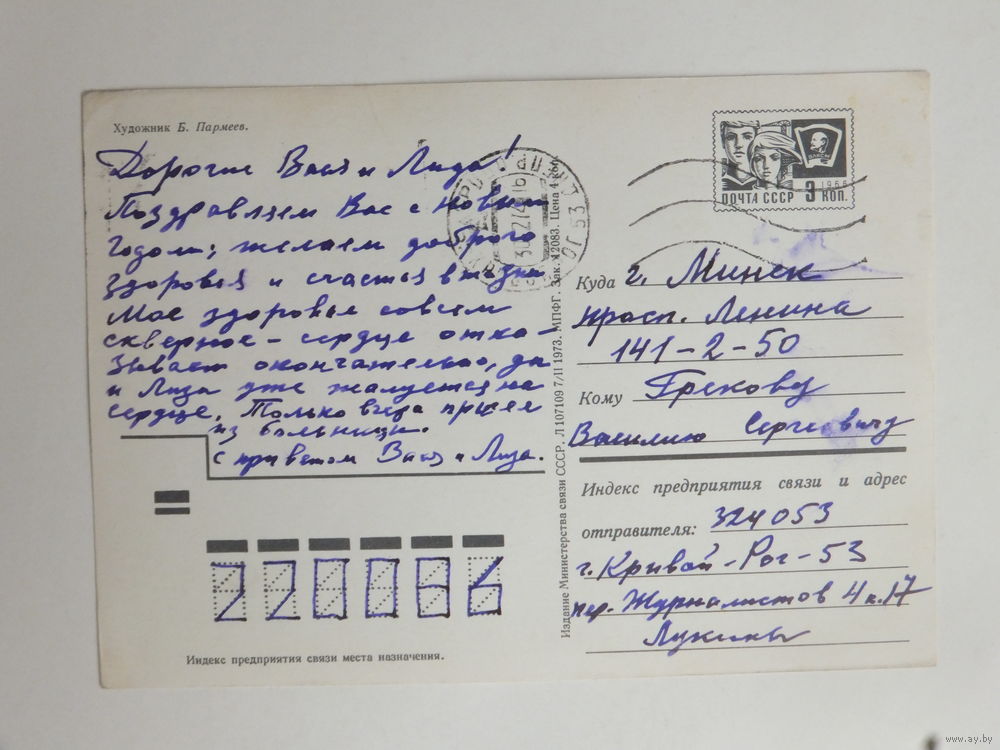 Художник Б. Пармеев.
Дорогие Вася и Лида!
Поздравляем Вас с новым
годом; желаем доброго
здоровья и счастья в жизни
Мое здоровье совсем
скверное - сердце отка-
зывает окончательно, да
и Лиза уже жалуется на
сердце. Только вчера пришел
из больницы.
с приветом Вася и Лиза.
Индекс предприятия связи места назначения.
220086
Издание Министерства связи СССР. Л 107109 7/II 1973. МПФГ. Зак. 42083. Цена 4 коп.
ВЛКСМ
1966
ПОЧТА СССР 3 КОП.
Куда г. Минск
просп. Ленина
141-2-50
Кому Грекову
Василию Сергеевичу
Индекс предприятия связи и адрес
отправителя: 324053
г. Кривой-Рог-53
пер. Журналистов 4 к.17
Лукины
www.ay.by